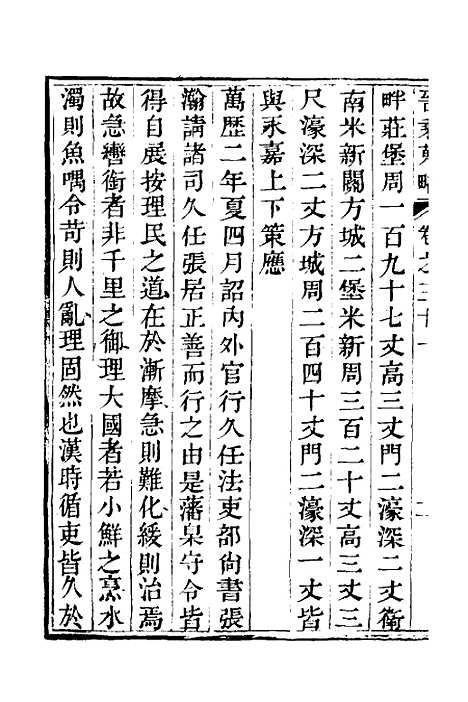 晉乘蒐略 卷之三十一 二
畔莊堡周一百九十七丈高三丈門二濠深二丈衛
南米新關方城二堡米新周三百二十丈高三丈三
尺濠深二丈方城周二百四十丈門二濠深一丈皆
與永嘉上下策應
萬歷二年夏四月詔內外官行久任法吏部尙書張
瀚請諸司久任張居正善而行之由是藩臬守令皆
得自展按理民之道在於漸摩急則難化緩則治焉
故急轡銜者非千里之御理大國者若小鮮之烹水
濁則魚喁令苛則人亂理固然也漢時循吏皆久於